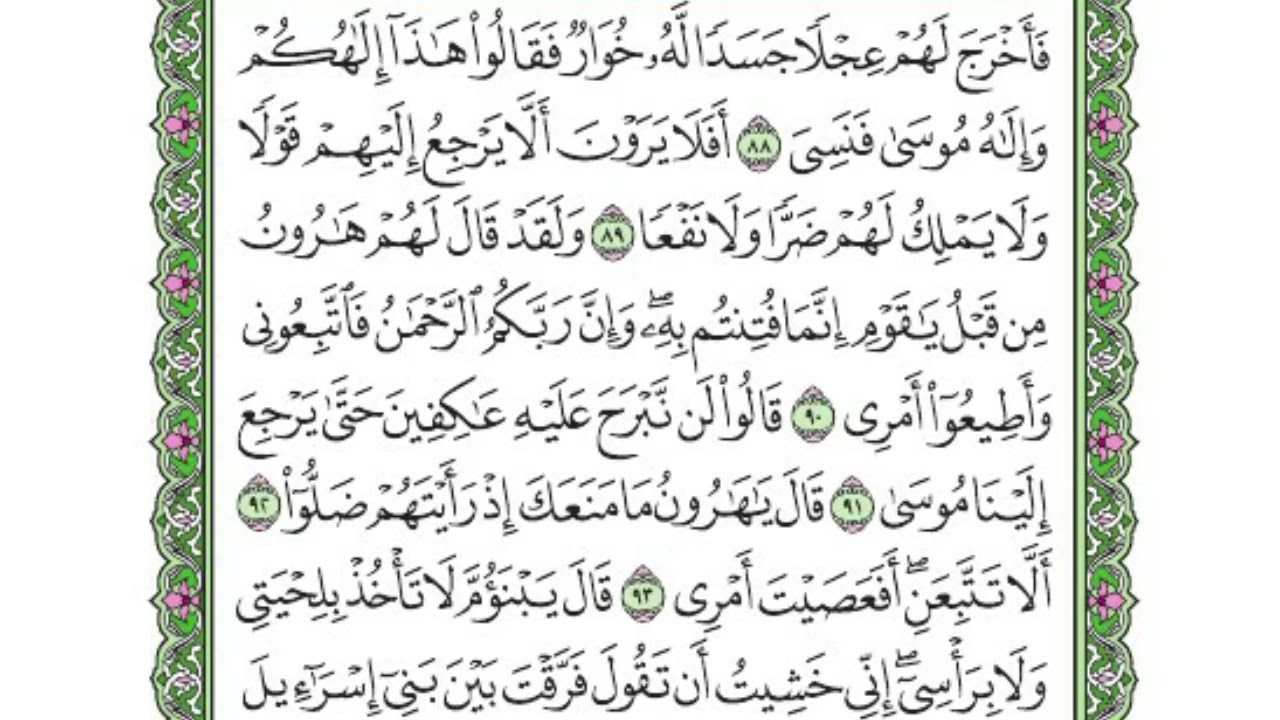 فَأَخْرَجَ لَهُمْ عِجْلًا جَسَدًا لَّهُۥ خُوَارٌ فَقَالُوا۟ هَـٰذَآ إِلَـٰهُكُمْ
وَإِلَـٰهُ مُوسَىٰ فَنَسِىَ ٨٨ أَفَلَا يَرَوْنَ أَلَّا يَرْجِعُ إِلَيْهِمْ قَوْلًا
وَلَا يَمْلِكُ لَهُمْ ضَرًّا وَلَا نَفْعًا ٨٩ وَلَقَدْ قَالَ لَهُمْ هَـٰرُونُ
مِن قَبْلُ يَـٰقَوْمِ إِنَّمَا فُتِنتُم بِهِۦ ۖ وَإِنَّ رَبَّكُمُ ٱلرَّحْمَـٰنُ فَٱتَّبِعُونِى
وَأَطِيعُوٓا۟ أَمْرِى ٩٠ قَالُوا۟ لَن نَّبْرَحَ عَلَيْهِ عَـٰكِفِينَ حَتَّىٰ يَرْجِعَ
إِلَيْنَا مُوسَىٰ ٩١ قَالَ يَـٰهَـٰرُونُ مَا مَنَعَكَ إِذْ رَأَيْتَهُمْ ضَلُّوٓا۟ ٩٢
أَلَّا تَتَّبِعَنِ ۖ أَفَعَصَيْتَ أَمْرِى ٩٣ قَالَ يَبْنَؤُمَّ لَا تَأْخُذْ بِلِحْيَتِى
وَلَا بِرَأْسِىٓ ۖ إِنِّى خَشِيتُ أَن تَقُولَ فَرَّقْتَ بَيْنَ بَنِىٓ إِسْرَٰٓءِيلَ